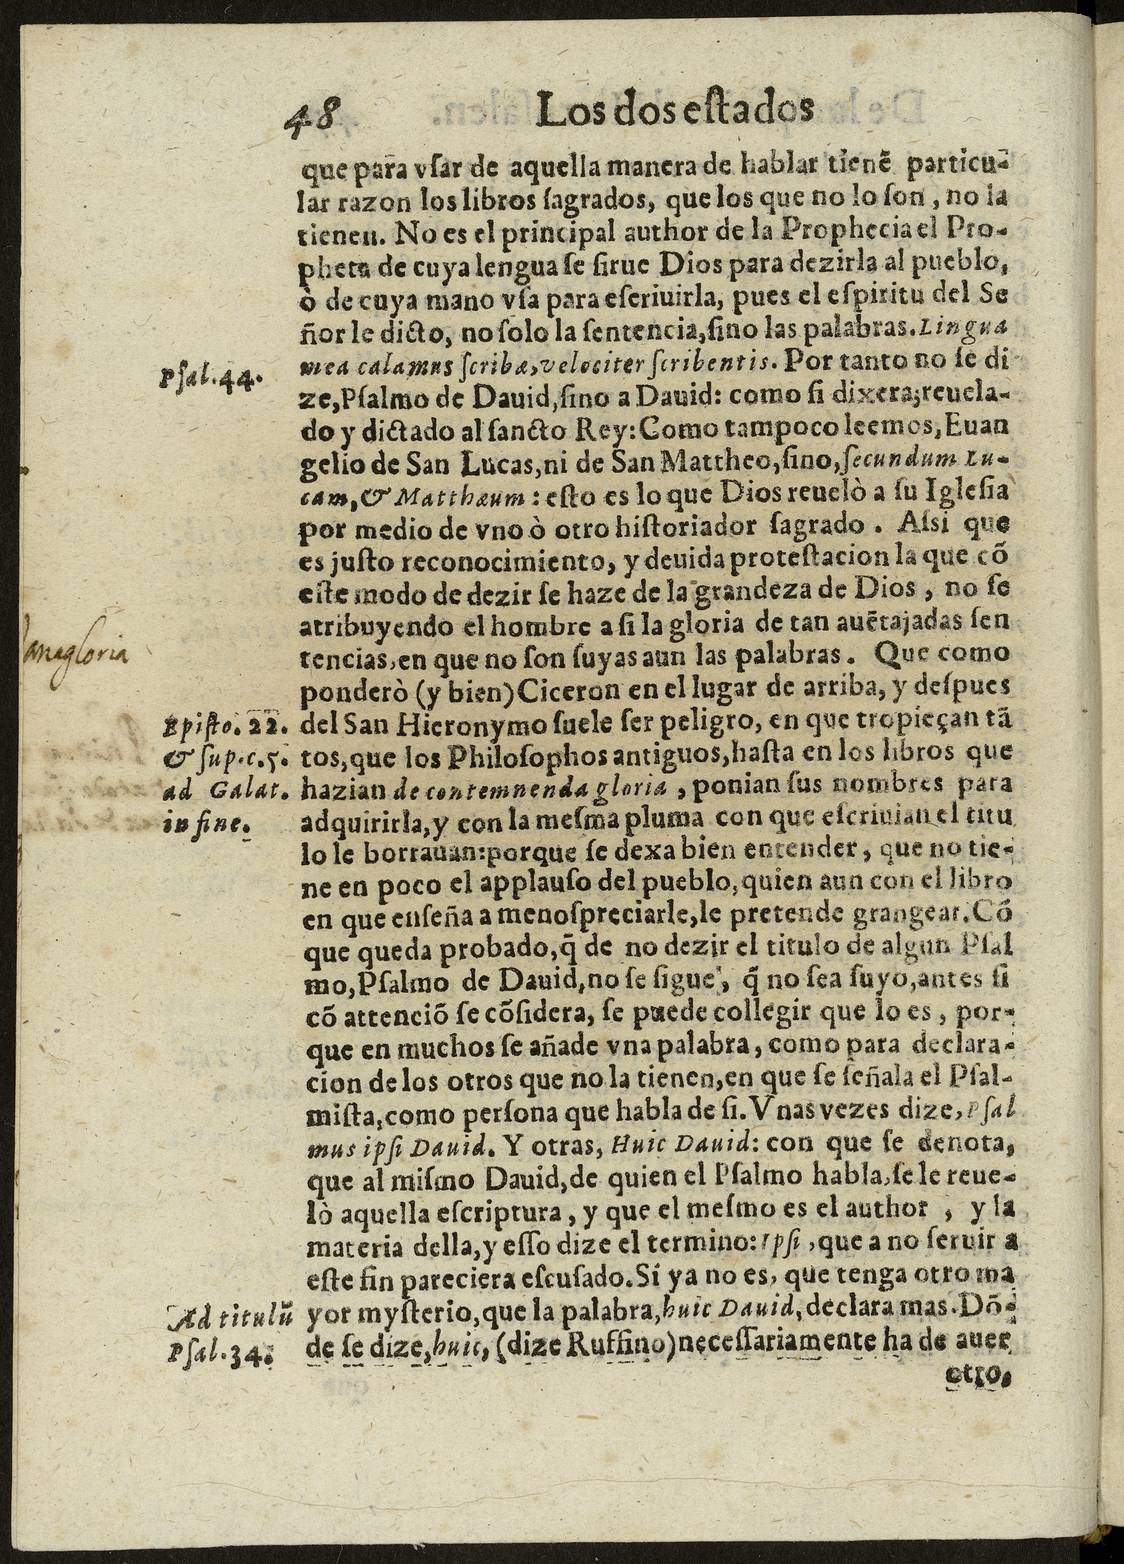 48 Los dos eſtados
que para vſar de aquella manera de hablar tienẽ particu-
lar razon los libros ſagrados, que los que no lo ſon, no la
tienen. No es el principal author de la Prophecia el Pro-
pheta de cuya lengua ſe ſirue Dios para dezirla al pueblo,
ò de cuya mano vſa para eſcriuirla, pues el eſpiritu del Se
ñor le dicto, no ſolo la ſentencia, ſino las palabras. Lingua
Pſal. 44.
mea calamus ſcribæ, velociter ſcribentis. Por tanto no ſe di
ze, Pſalmo de Dauid, ſino a Dauid: como ſi dixera; reuela-
do y dictado al ſancto Rey: Como tampoco leemos, Euan
gelio de San Lucas, ni de San Mattheo, ſino, ſecundum Lu-
cam, & Matthæum: eſto es lo que Dios reuelò a ſu Igleſia
por medio de vno ò otro hiſtoriador ſagrado. Aſsi que
es juſto reconocimiento, y deuida proteſtacion la que cõ
eſte modo de dezir ſe haze de la grandeza de Dios, no ſe
atribuyendo el hombre a ſi la gloria de tan auẽtajadas ſen
anagloria
tencias, en que no ſon ſuyas aun las palabras. Que como
ponderò (y bien) Ciceron en el lugar de arriba, y deſpues
Epiſto. 22.
& ſup. c. 5.
ad Galat.
in fine.
del San Hieronymo ſuele ſer peligro, en que tropieçan tã
tos, que los Philoſophos antiguos, haſta en los libros que
hazian de contemnenda gloria, ponian ſus nombres para
adquirirla, y con la meſma pluma con que eſcriuian el titu
lo le borrauan: porque ſe dexa bien entender, que no tie-
ne en poco el applauſo del pueblo, quien aun con el libro
en que enſeña a menoſpreciarle, le pretende grangear. Cõ
que queda probado, q̃ de no dezir el titulo de algun Pſal
mo, Pſalmo de Dauid, no ſe ſigue, q̃ no ſea ſuyo, antes ſi
cõ attenciõ ſe cõſidera, ſe puede collegir que lo es, por-
que en muchos ſe añade vna palabra, como para declara-
cion de los otros que no la tienen, en que ſe ſeñala el Pſal-
miſta, como perſona que habla de ſi. Vnas vezes dize, Pſal
mus ipſi Dauid. Y otras, Huic Dauid: con que ſe denota,
que al miſmo Dauid, de quien el Pſalmo habla, ſe le reue-
lò aquella eſcriptura, y que el meſmo es el author, y la
materia della, y eſſo dize el termino: Ipſi, que a no ſeruir a
eſte fin pareciera eſcuſado. Sí ya no es, que tenga otro ma
Ad titulũ
Pſal. 34.
yor myſterio, que la palabra, huic Dauid, declara mas. Dõ-
de ſe dize, huic, (dize Ruffino) neceſſariamente ha de auer
otro,